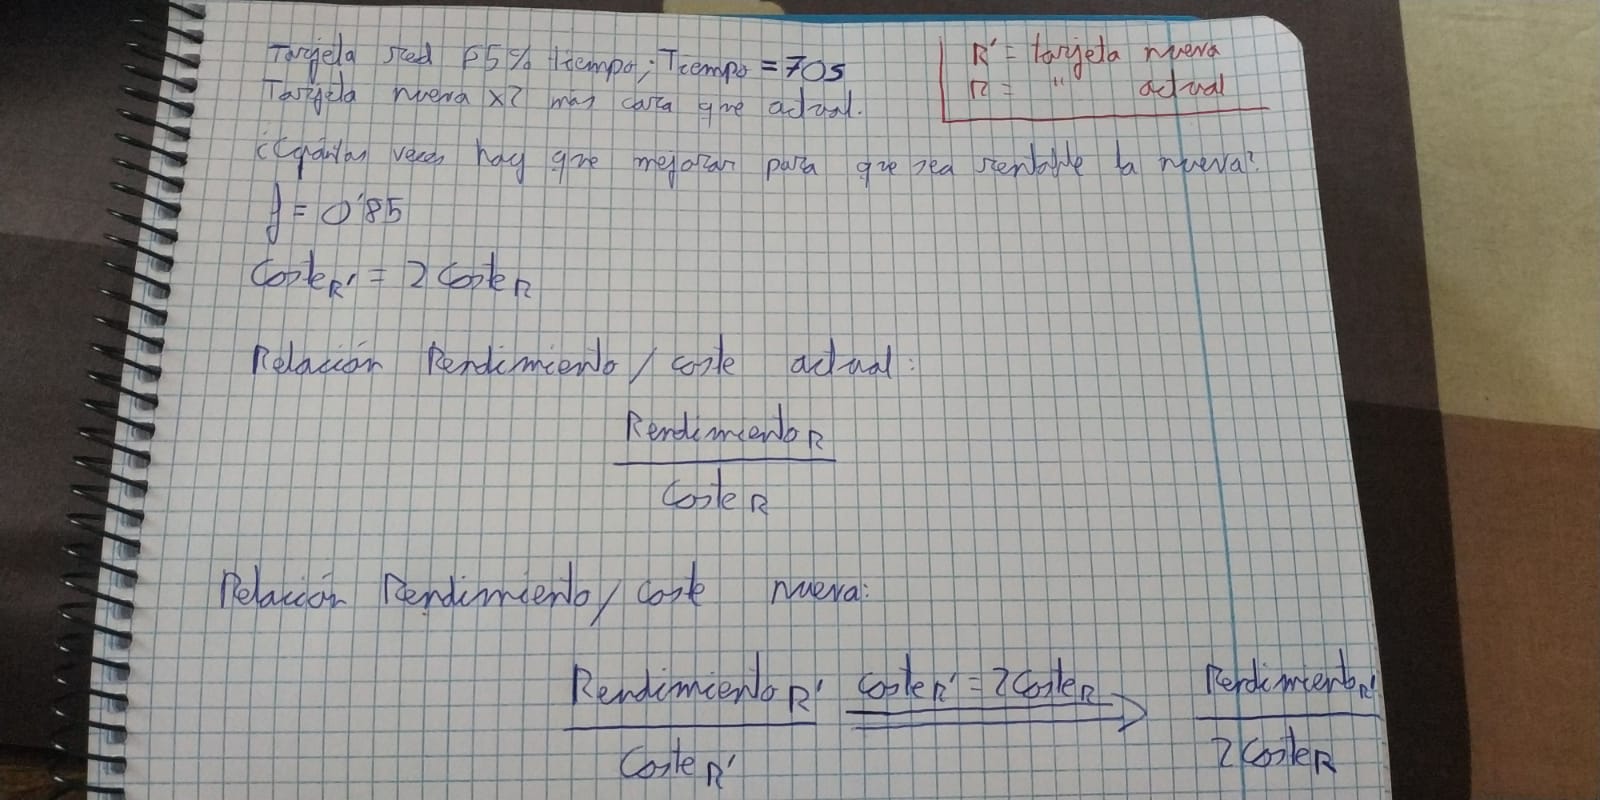 Tarjeta red 85% tiempo; Tiempo = 70s
Tarjeta nueva x2 mas cara que actual.
R' = tarjeta nueva
R = " actual
¿Cuántas veces hay que mejorar para que sea rentable la nueva?
f = 0'85
Coste R' = 2 Coste R
Relación Rendimiento / coste actual:
Rendimiento R
Coste R
Relación Rendimiento / coste nueva:
Rendimiento R' Coste R' = 2 Coste R Rendimiento R'
Coste R' 2 Coste R